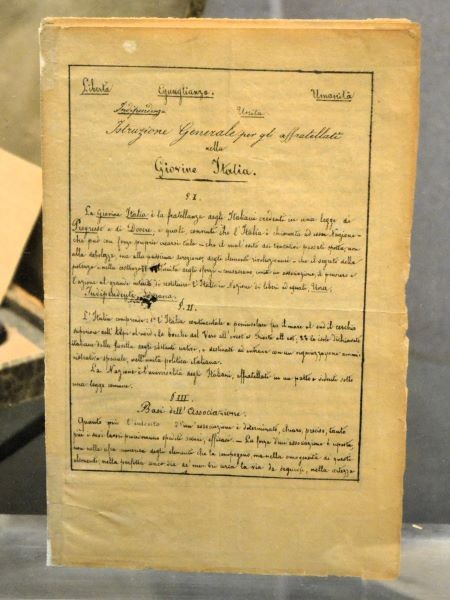 Libertà Eguaglianza. Umanità
Indipendenza Unità
Istruzione Generale per gli affratellati
nella
Giovine Italia.
§ I.
La Giovine Italia è la fratellanza degli Italiani credenti in una legge di
Progresso e di Dovere, e quali, convinti che l'Italia è chiamata ad essere Nazione-
che può con forze proprie crearsi tale - che il mal esito dei tentativi passati spetta, non
alla debolezza, ma alla pessima direzione degli elementi rivoluzionari - che il segreto della
potenza nella costanza unità degli sforzi - consacrano uniti in associazione, il pensiero e
l'azione al grande intento di restituire l'Italia in Nazione di liberi ed eguali, Una,
Indipendente
§. II.
L'Italia comprende: 1° l'Italia continentale e peninsulare fra il mare al sud, il cerchio
superiore dell'Alpi al nord, le bocche del Varo all'ovest e Trieste all'est. 2° le isole dichiarate
italiane dalla favella degli abitanti nativi, e destinate ad entrare con un'organizzazione ammi-
nistrativa speciale, nell'unità politica italiana.
La Nazione è l'universalità degli Italiani, affratellati in un patto e viventi sotto
una legge comune.
§ III
Basi dell'Associazione.
Quanto più l'intento d'un'associazione è determinato, chiaro, preciso, tanto
più i suoi lavori procederanno spediti, securi, efficaci. - La forza d'un'associazione è riposta,
non nella cifra numerica degli elementi che la compongono, ma nella omogeneità di questi
elementi, nella perfetta concordia dei membri circa la via da seguirsi, nella certezza